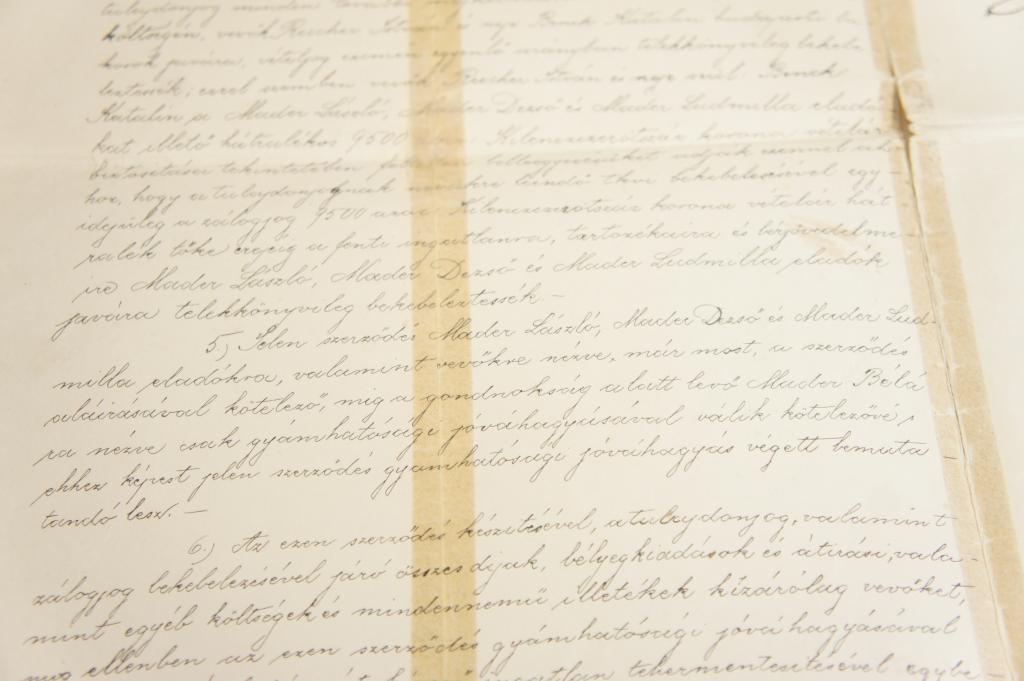 tulajdonjog minden további
költségén, vevők Rescher István és neje Benek Katalin budapesti la-
kosok javára, vételjog czimen egyenlő arányban telekkönyvileg bekebe-
leztessék; ezzel szemben vevők Rescher István és neje szül. Benek
Katalin a Mader László, Mader Dezső és Mader Ludmilla eladó-
kat illető hátralékos 9500 azaz Kilenczezerötszáz korona vételár
biztositása tekintetében feltétlen beleegyezésüket adják ezennel ah-
hoz, hogy a tulajdonjognak nevükre leendő tkvi bekebelezésével egy-
idejüleg a zálogjog 9500 azaz Kilenczezerötszáz korona vételár hát-
ralék tőke erejéig a fenti ingatlanra, tartozékaira és bérjövedelme-
ire Mader László, Mader Dezső és Mader Ludmilla eladók
javára telekkönyvileg bekebeleztessék. —
5.) Jelen szerződés Mader László, Mader Dezső és Mader Lud-
milla eladókra, valamint vevőkre nézve, már most, a szerződés
aláirásával kötelező, mig a gondnokság alatt levő Mader Béla
ra nézve csak gyámhatósági jóváhagyásával válik kötelezővé,
ehhez képest jelen szerződés gyámhatósági jóváhagyás végett bemuta-
tandó lesz. —
6.) Az ezen szerződés készitésével, a tulajdonjog, valamint
zálogjog bekebelezésével járó összes dijak, bélyegkiadások és átirási, vala-
mint egyéb költségek és mindennemü illetékek kizárólag vevőket,
mig ellenben az ezen szerződés gyámhatósági jóváhagyásával
ingatlan tehermentesitésével egybe-